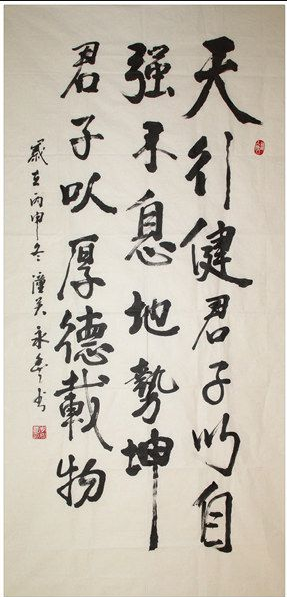 天行健君子以自
强不息地勢坤
君子以厚德載物
歲在丙申冬潼关永